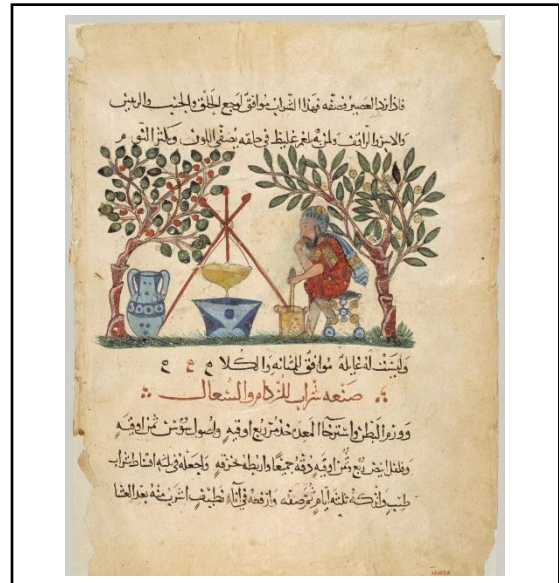 فاذا برد العصير فصفه فهذا الشراب موافق لوجع الحلق والجنب والريتين
غليظ في حلقه يصفي اللون ويكثر النوم
وليست له غايلة موافق للمثانه والكلا
صنعه شراب للزكام والسعال
وورم البطن واسترخا المعده خذ مر ربع اوقيه واصول سوسن ثمن اوقيه
وفلفل ابيض ربع وثمن اوقيه دقه جميعا واربطه بخرقه واجعله في ثلثه اقساط شراب
طيب واتركه ثلثه ايام ثم صفه وارفعه في اناء نظيف اشرب منه بعد العشا